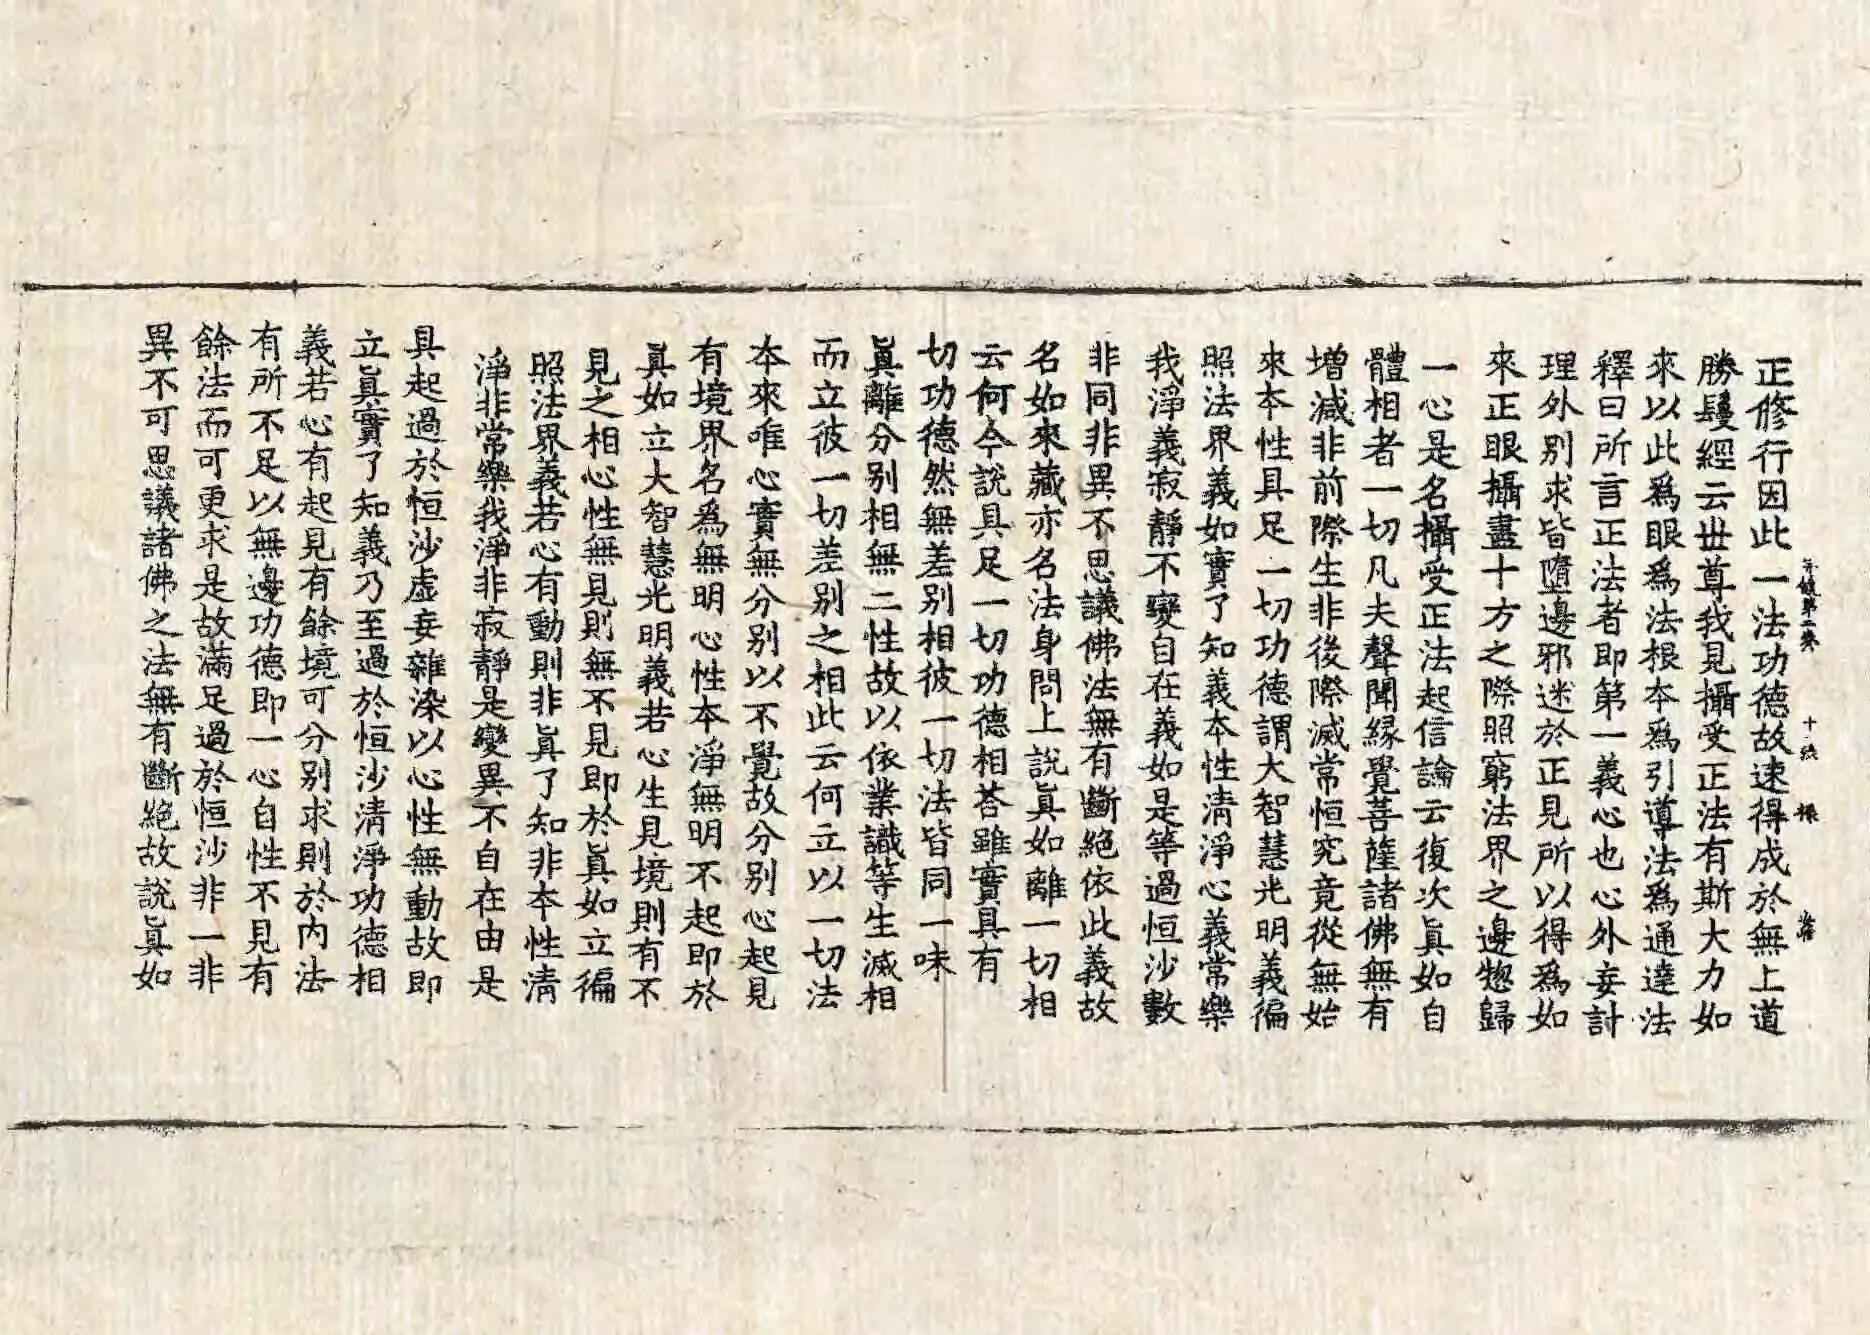 正修行因此一法功德故速得成於無上道
勝鬘經云丗尊我見攝受正法有斯大力如
來以此爲眼爲法根本爲引導法爲通達法
釋曰所言正法者即第一義心也心外妄計
理外別求皆墮邊邪迷於正見所以得爲如
來正眼攝盡十方之際照窮法界之邊惣歸
一心是名攝受正法起信論云復次眞如自
體相者一切凡夫聲聞縁覺菩薩諸佛無有
增減非前際生非後際滅常恒究竟從無始
來本性具足一切功德謂大智慧光明義徧
照法界義如實了知義本性清淨心義常樂
我淨義寂靜不變自在義如是等過恒沙數
非同非異不思議佛法無有斷絕依此義故
名如來藏亦名法身問上說眞如離一切相
云何今說具足一切功德相荅雖實具有
切功德然無差別相彼一切法皆同一味
眞離分別相無二性故以依業識等生滅相
而立彼一切差別之相此云何立以一切法
本來唯心實無分別以不覺故分別心起見
有境界名爲無明心性本淨無明不起即於
眞如立大智慧光明義若心生見境則有不
見之相心性無見則無不見即於眞如立徧
照法界義若心有動則非眞了知非本性清
淨非常樂我淨非寂靜是變異不自在由是
具起過於恒沙虛妄雜染以心性無動故即
立眞實了知義乃至過於恒沙清淨功德相
義若心有起見有餘境可分別求則於內法
有所不足以無邊功德即一心自性不見有
餘法而可更求是故滿足過於恒沙非一非
異不可思議諸佛之法無有斷絕故說眞如